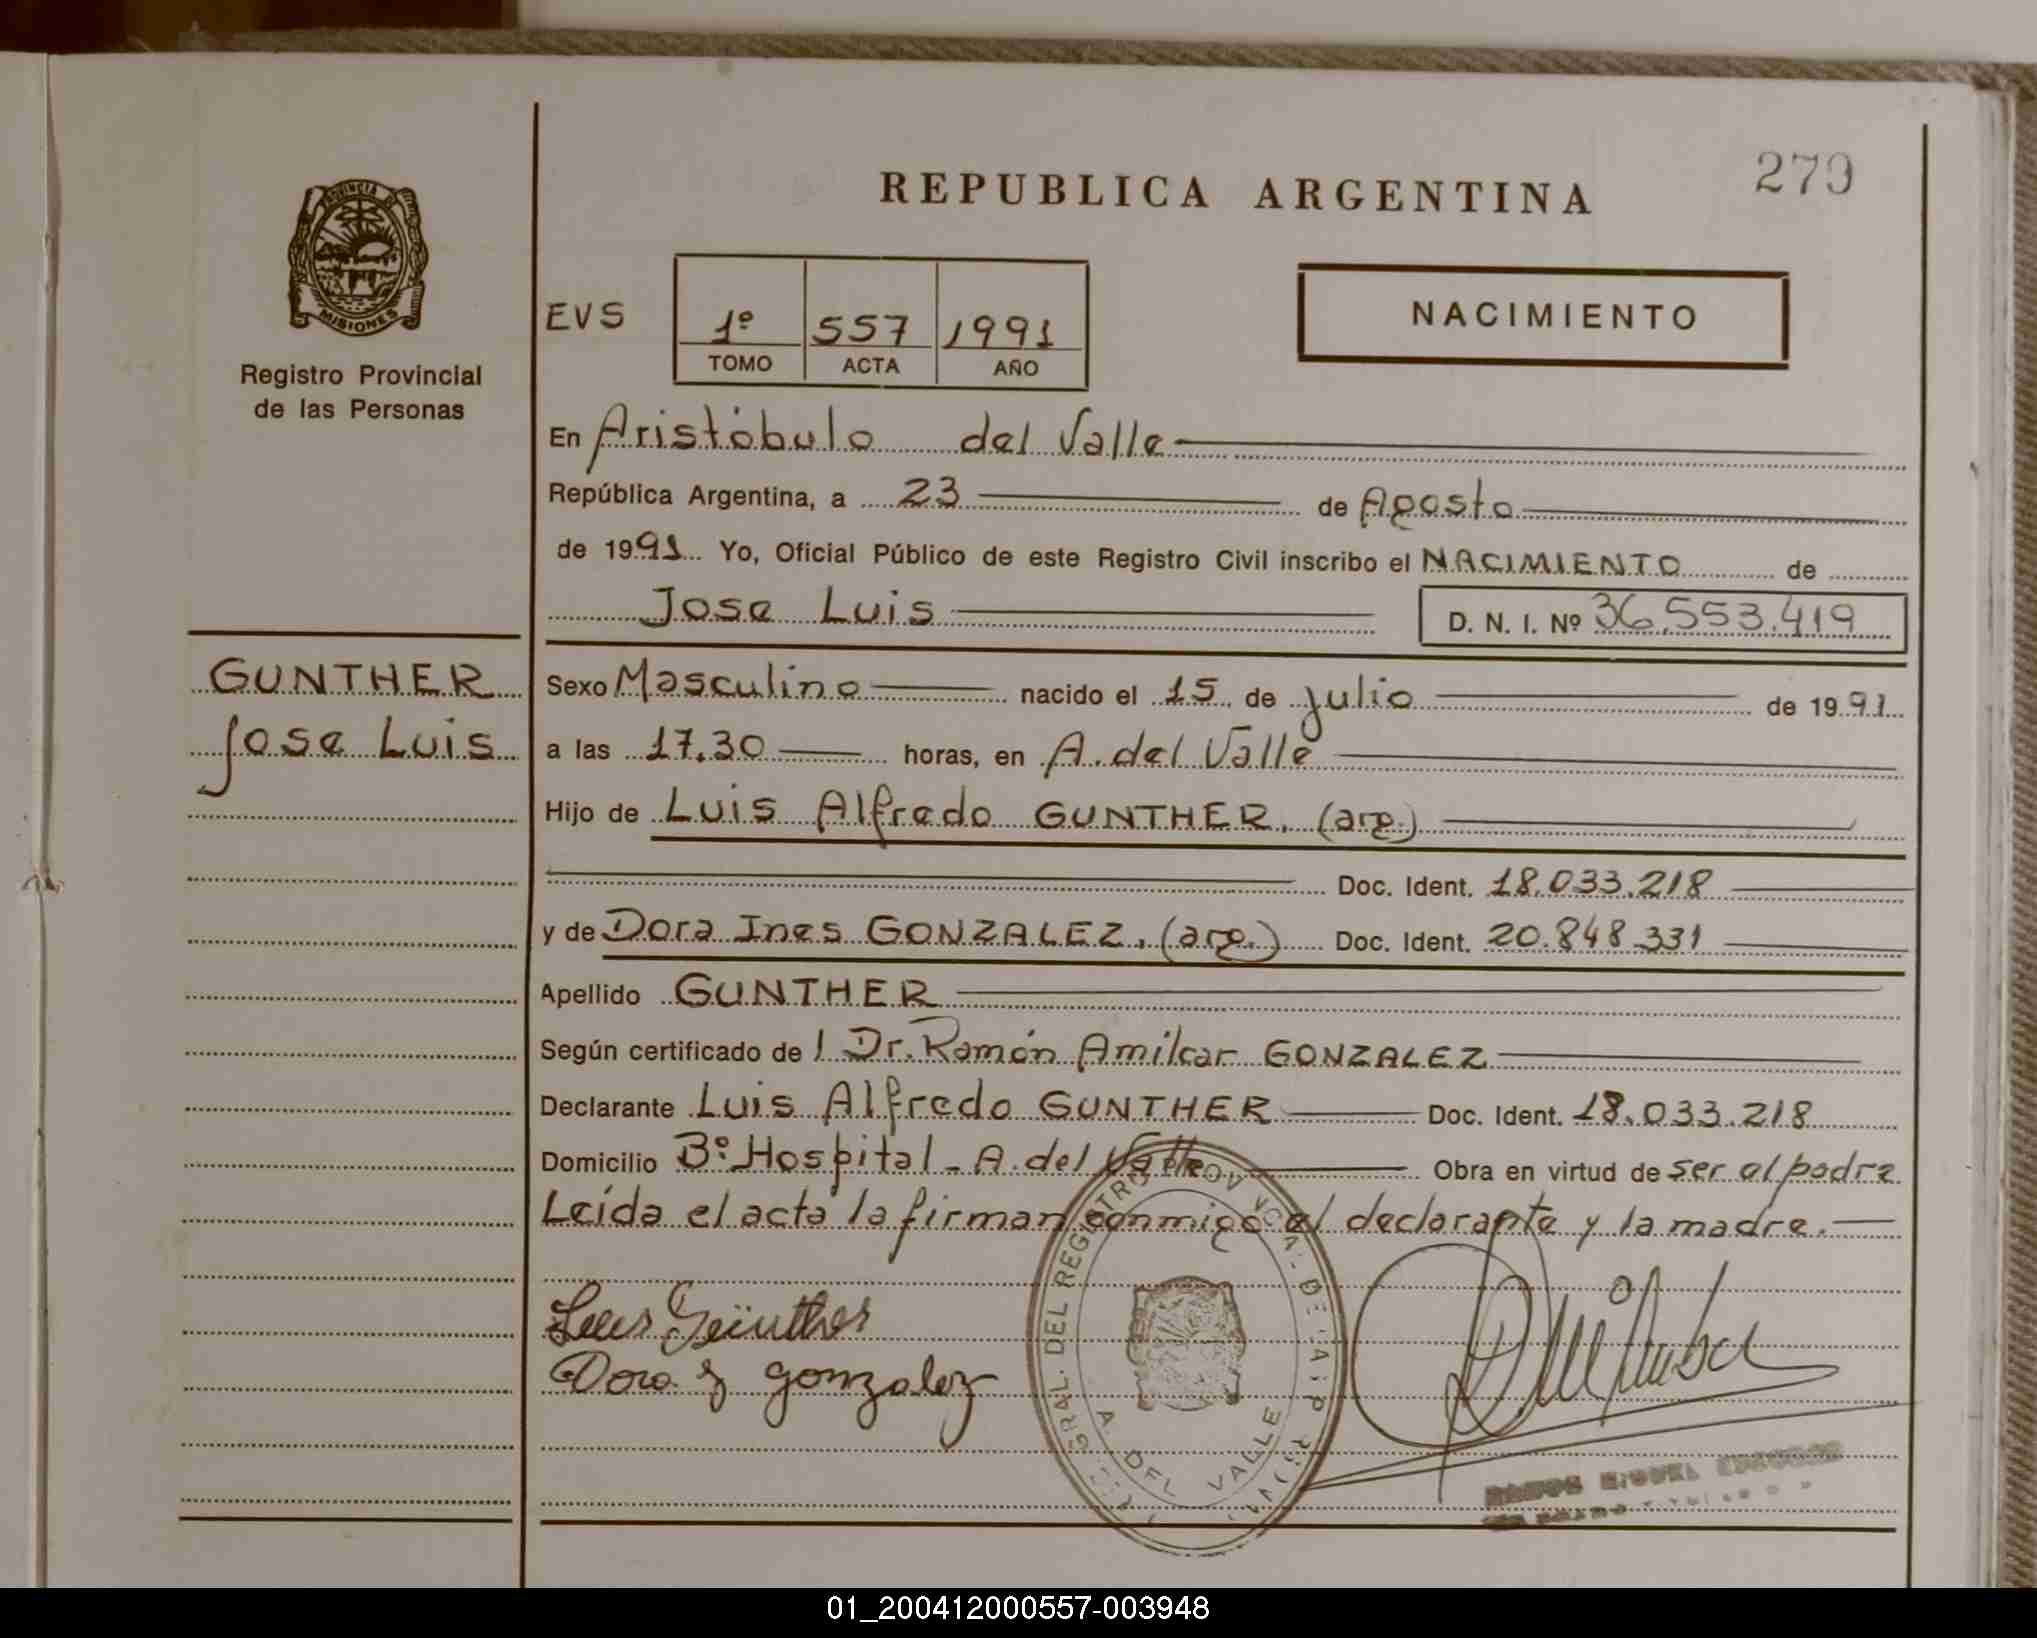 279
REPUBLICA ARGENTINA
PROVINCIA DE
MISIONES
Registro Provincial
de las Personas
EVS
1º 557 1991
TOMO ACTA AÑO
NACIMIENTO
En Aristóbulo del Valle
República Argentina, a 23 de Agosto
de 1991 Yo, Oficial Público de este Registro Civil inscribo el NACIMIENTO de
Jose Luis D. N. I. Nº 36.553.419
GUNTHER
Jose Luis
Sexo Masculino nacido el 15 de Julio de 1991
a las 17.30 horas, en A. del Valle
Hijo de Luis Alfredo GUNTHER, (arg.)
Doc. Ident. 18.033.218
y de Dora Ines GONZALEZ, (arg.) Doc. Ident. 20.848.331
Apellido GUNTHER
Según certificado del Dr. Ramón Amilcar GONZALEZ
Declarante Luis Alfredo GUNTHER Doc. Ident. 18.033.218
Domicilio Bº Hospital - A. del Valle Obra en virtud de ser el padre
Leída el acta la firman conmigo el declarante y la madre.
Luis Günther
Dora I Gonzalez
GRAL. DEL REGISTRO PROV
A DEL VALLE
01_200412000557-003948